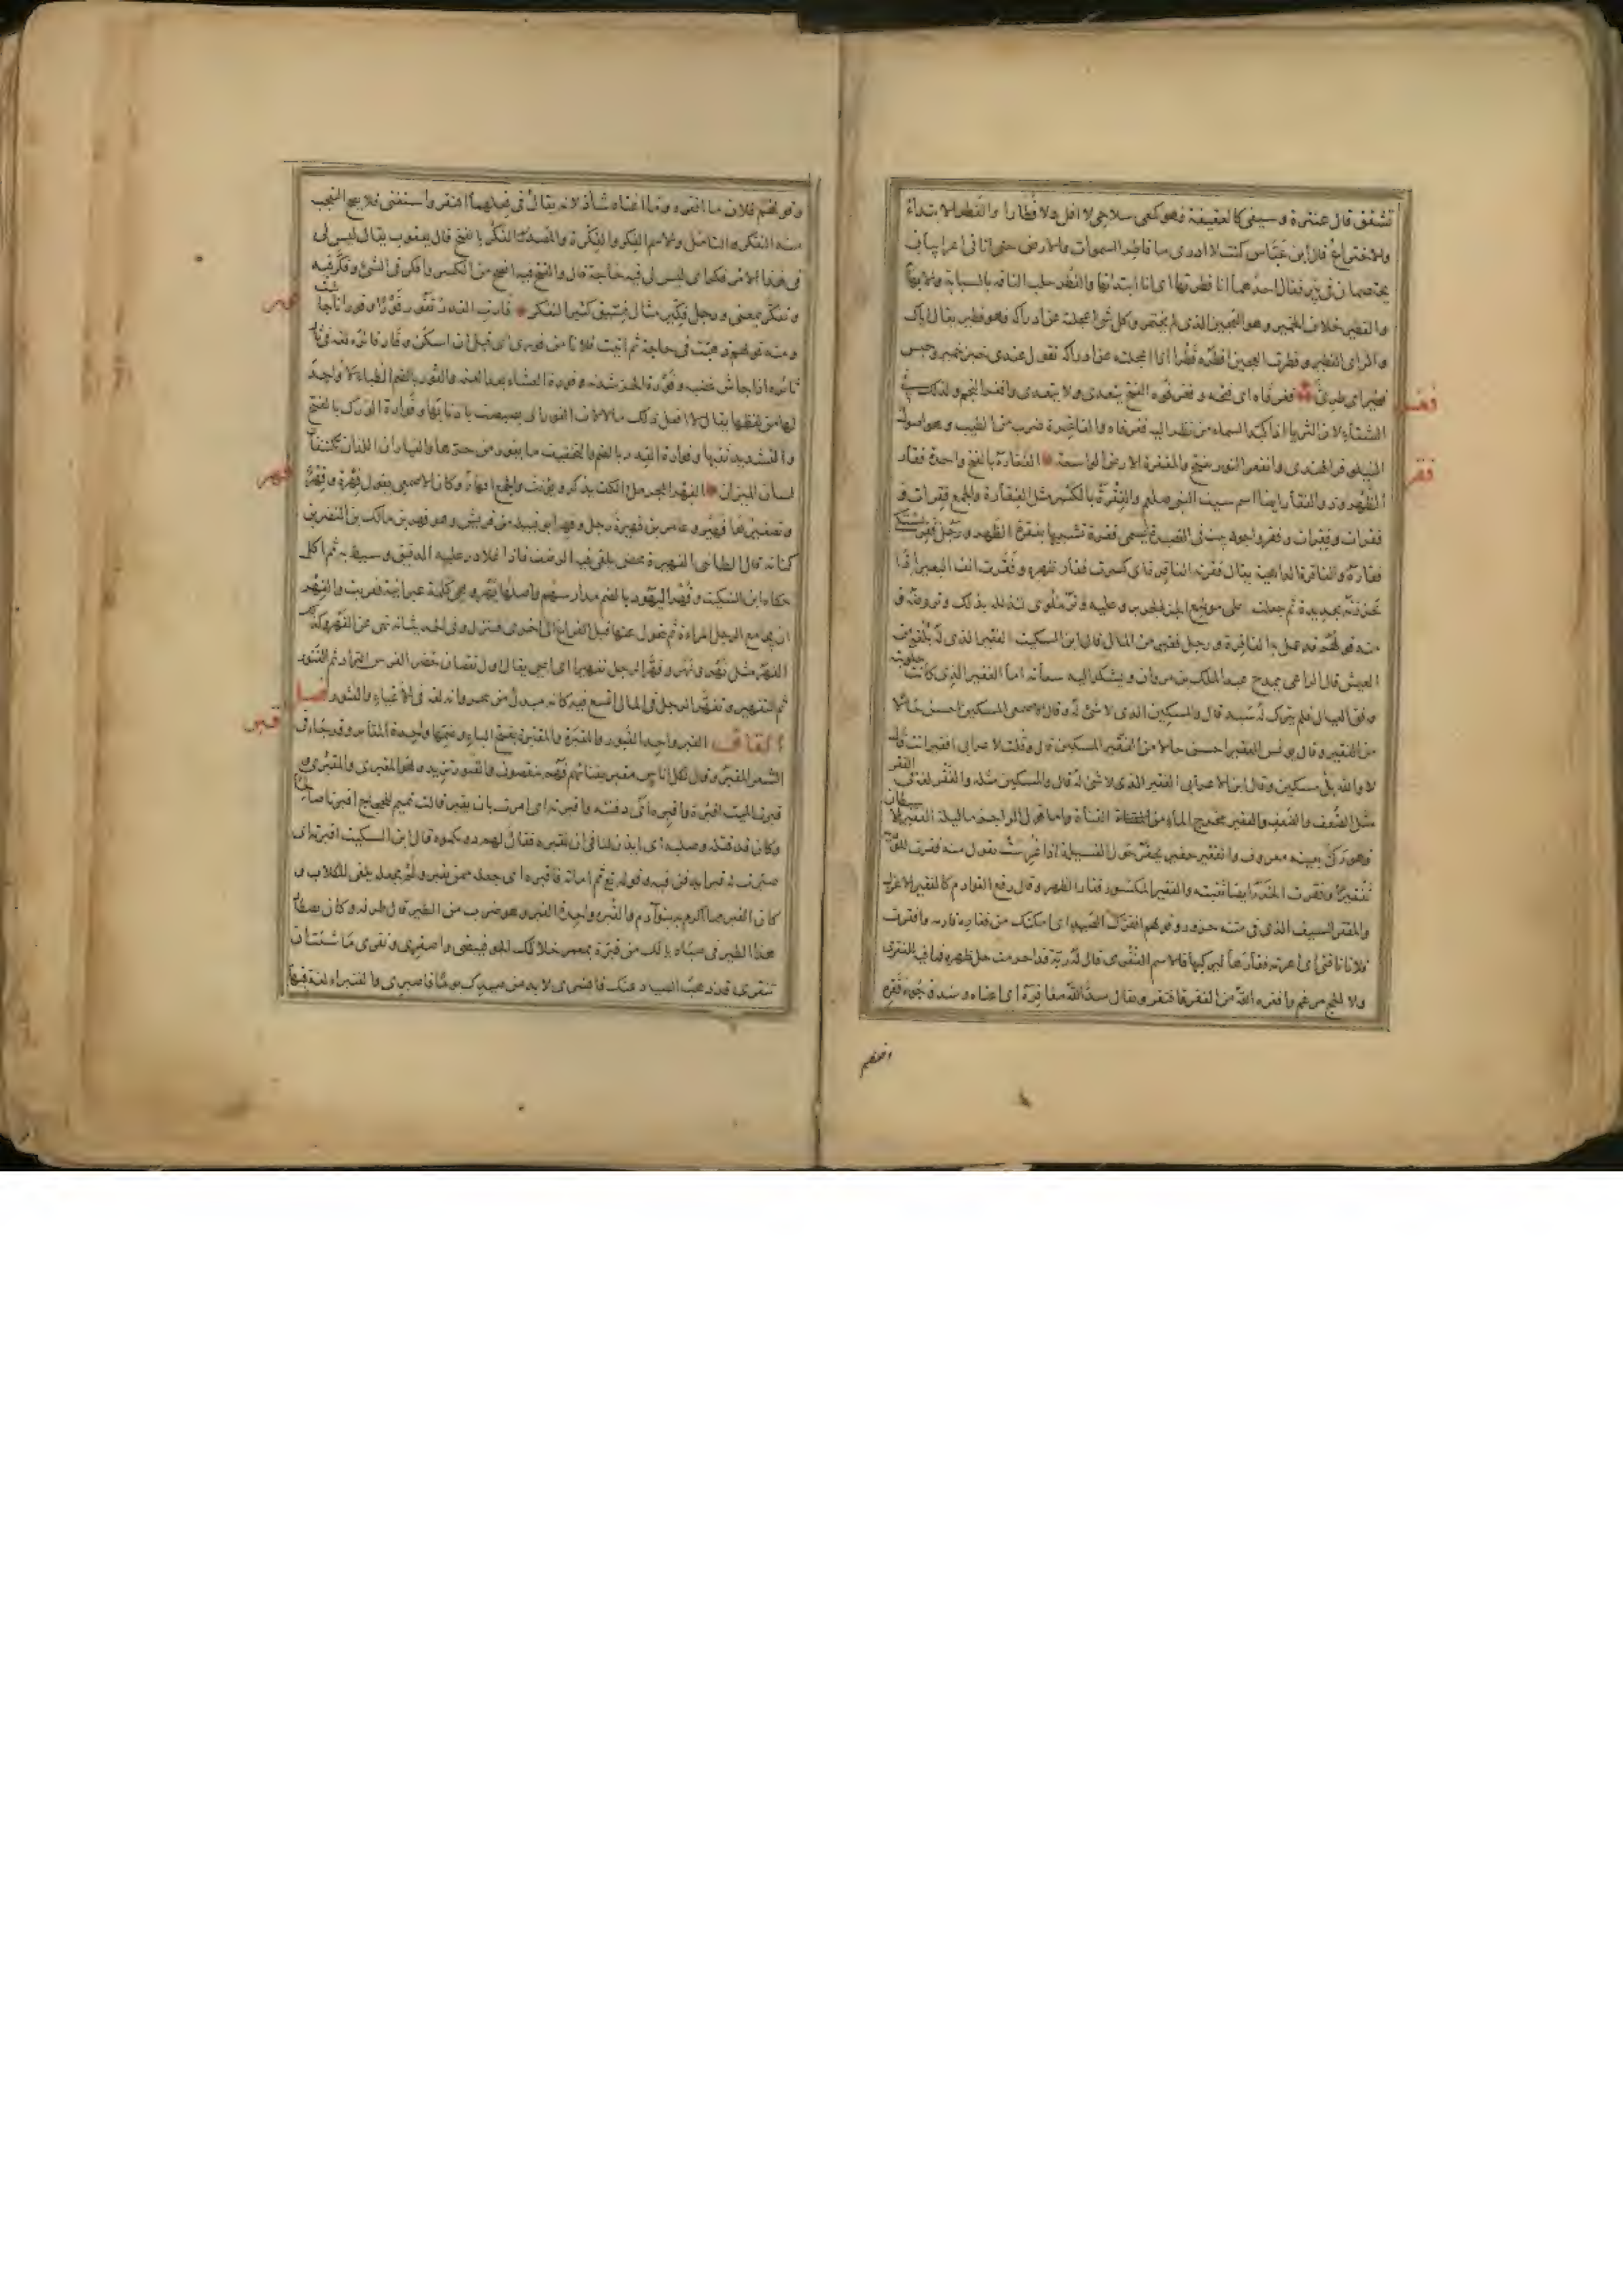 تشقق قال عنترة وسيفي كالعقيقة فهو كمعي سلاحي لا افل ولا فطارا والفطر الابتداء
والاختراع قال ابن عباس كنت لا ادري ما فاطر السموات والارض حتى اتاني اعرابيان
يختصمان في بئر فقال احدهما انا فطرتها اي انا ابتداتها والفطر حلب الناقة بالسبابة والابهام
والفطير خلاف الخمير وهو العجين الذي لم يختمر وكل شئ اعجلته عن ادراكه فهو فطير يقال اياك
والراي الفطير وفطرت العجين افطره فطرا اذا اعجلته عن ادراكه تقول عندي خبز خمير وحيس
فطير اي طري فغر فاه اي فتحه وفغر فوه انفتح يتعدى ولا يتعدى وافغر النجم وذلك في
الشتاء لان الثريا اذا كبد السماء من نظر اليه فغر فاه والفاغرة ضرب من الطيب وهو اصول
النيلوفر الهندي وانفغر النور تفتح والمفغرة الارض الواسعة الفقارة بالفتح واحدة فقار
الظهر وذو الفقار ايضا اسم سيف النبي صلعم والفقرة بالكسر مثل الفقارة والجمع فقرات و
فقرات وفقرات وفقر واجود بيت في القصيدة يسمى فقرة تشبيها بفقرة الظهر ورجل فقر يشتكي
فقاره والفاقرة الداهية يقال فقرته الفاقرة اي كسرت فقار ظهره وفقرت انف البعير اذا
حززته بحديدة ثم جعلت على موضع الحز الجرير وعليه وتر ملوي لتذلله بذلك وتروضه و
منه قولهم قد عمل به الفاقرة ورجل فقير من المال قال ابن السكيت الفقير الذي له بلغة من
العيش قال الراعي يمدح عبد الملك بن مروان ويشكو اليه سعاته اما الفقير الذي كانت حلوبته
وفق العيال فلم يترك له سبد قال والمسكين الذي لا شئ له وقال الاصمعي المسكين احسن حالا
من الفقير وقال يونس الفقير احسن حالا من المسكين قال وقلت لاعرابي افقير انت فقال
لا والله بل مسكين وقال ابن الاعرابي الفقير الذي لا شئ له قال والمسكين مثله والفقر لغة في الفقر
مثل الضعف والضعف والفقير مخرج الماء من القناة
وهو ركي بعينه معروف والفقير حفير يحفر حول الفسيلة اذا غرست تقول منه فقرت للودية
تفقيرا وفقرت الخرز ايضا ثقبته والفقير المكسور فقار الظهر وقال رفع القوادم كالفقير الاعزل
والمفقر السيف الذي في متنه حزوز وقولهم افقرك الصيد اي امكنك من فقاره فارمه وافقرت
فلانا ناقتي اي اعرته فقارها ليركبها والاسم الفقرى
وافقره الله من الفقر فافتقر ويقال سد الله مفاقره اي اغناه وسد وجوه فقره
افقر
قولهم
وقولهم فلان ما افقره وما اغناه شاذ لانه يقال في فعلهما افتقر واستغنى فلا يصح التعجب
منه التفكر التامل والاسم الفكر والفكرة والمصدر الفكر بالفتح قال يعقوب يقال ليس لي
في هذا الامر فكر اي ليس لي فيه حاجة قال والفتح فيه افصح من الكسر وافكر في الشئ وفكر فيه
وتفكر بمعنى ورجل فكير مثال فسيق كثير التفكر فارت القدر تفور فورا وفورانا جاشت
ومنه قولهم ذهبت في حاجة ثم اتيت فلانا من فوري اي قبل ان اسكن وفار فائره لغة في ثار
ثائره اذا جاش غضبه وفورة الحر شدته وفورة العشاء بعد العتمة والفور بالضم الظباء لا واحد
لها من لفظها يقال لا افعل ذلك ما لالات الفور اي بصبصت باذنابها وفوارة الورك بالفتح
والتشديد ثقبها وفوارة القدر بالضم والتخفيف ما يفور من حرها والفياران اللذان يكتنفان
لسان الميزان الفهر الحجر ملء الكف يذكر ويؤنث والجمع افهار وكان الاصمعي يقول فهرة وفهر
وتصغيرها فهير وعامر بن فهيرة رجل وفهر ابو قبيلة من قريش وهو فهر بن مالك بن النضر بن
كنانة قال الطائي الفهيرة محض يلقى فيه الرضف فاذا غلا ذر عليه الدقيق وسيط به ثم اكل
حكاه ابن السكيت وفهر اليهود بالضم مدارسهم واصلها بهر وهي كلمة عبرانية فعربت والفهر
ان يجامع الرجل المراة ثم يتحول عنها قبل الفراغ الى اخرى فينزل وفي الحديث انه نهى عن الفهر وكذلك
الفهر مثل نهر ونهر وفهر الرجل تفهيرا اي اعيى يقال اول نقصان حضر الفرس التراد ثم الفتور
ثم التفهير وتفهر الرجل في المال اتسع فيه كانه مبدل من تبحر او انه لغة في الاعياء والفتور فصل
القاف القبر واحد القبور والمقبرة والمقبرة بفتح الباء وضمها واحدة المقابر وقد جاء في
الشعر المقبر وقال لكل اناس مقبر بفنائهم فهم ينقصون والقبور تزيد وهو المقبري والمقبري
قبرت الميت اقبره واقبره اي دفنته واقبرته اي امرت بان يقبر قالت تميم للحجاج اقبرنا صالحا
وكان قد قتله وصلبه اي ائذن لنا في ان نقبره فقال لهم دونكموه قال ابن السكيت اقبرته اي
صيرت له قبرا يدفن فيه وقوله تع ثم اماته فاقبره اي جعله ممن يقبر ولم يجعله يلقى للكلاب و
كان القبر مما اكرم به بنو آدم والقبر واحدة القبر وهو ضرب من الطير قال طرفة وكان يصطاد
هذا الطير في صباه يا لك من قبرة بمعمر خلا لك الجو فبيضي واصفري ونقري ما شئت ان
تنقري قد ذهب الصياد عنك فابشري لا بد من صيدك يوما فاصبري والقنبراء لغة فيها
فغر
فقر
فهر
قبر